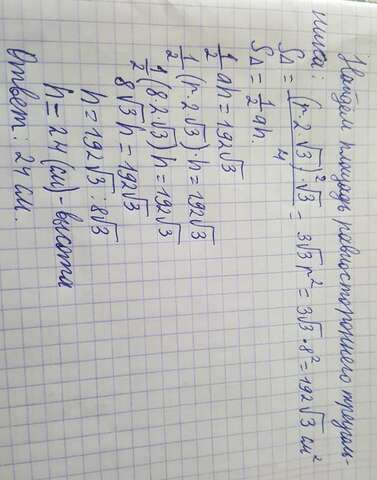 Найдем площадь равностороннего треуголь-
ника:
S△ = (r·2√3)²·√3 / 4 = 3√3 r² = 3√3 · 8² = 192√3 см²
S△ = 1/2 ah.
1/2 ah = 192√3
1/2 (r·2√3) h = 192√3
1/2 (8·2√3) h = 192√3
8√3 h = 192√3
h = 192√3 : 8√3
h = 24 (см) - высота
Ответ: 24 см.